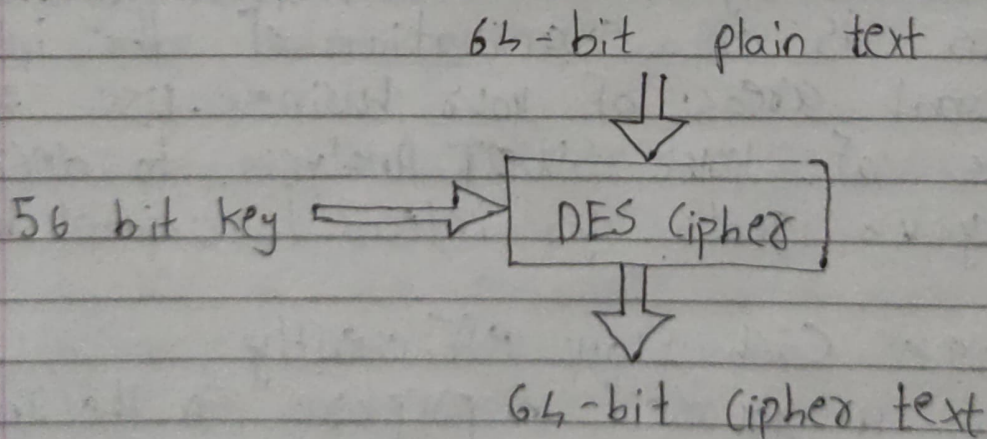 64-bit plain text
56 bit key
DES Cipher
64-bit Cipher text